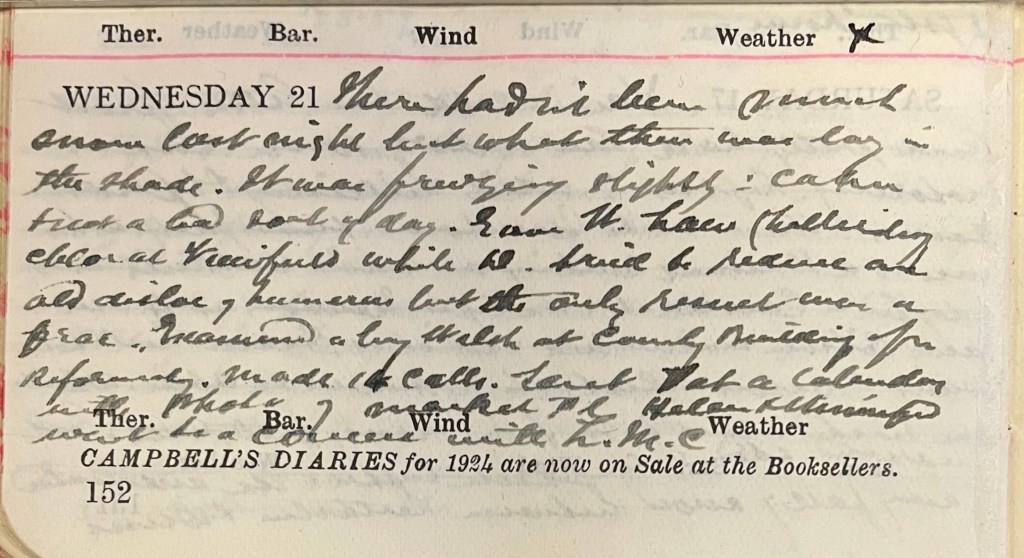 Ther. Bar. Wind Weather
WEDNESDAY 21 There hadn't been much
snow last night but what there was lay in
the shade. It was freezing slightly : calm
& not a bad sort of day. Gave W. Law
chlor at Viewfield while W. tried to reduce an
old disloc of humerus but the only result was a
frac. Examined a boy Walsh at County Building for
Reformatory. Made 14 calls. Sent Pat a Calendar
with Photo of market Pl Helen &
went to a Concert with L. M. C
Ther. Bar. Wind Weather
CAMPBELL'S DIARIES for 1924 are now on Sale at the Booksellers.
152